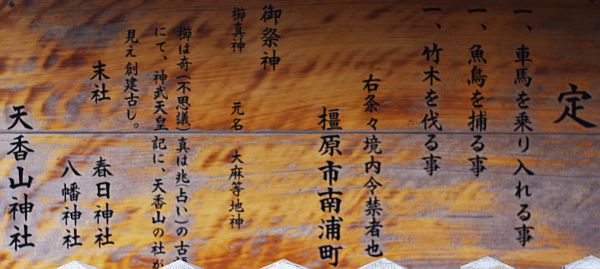 定
一、車馬を乗り入れる事
一、魚鳥を捕る事
一、竹木を伐る事
右条々境内令禁者也
橿原市南浦町
御祭神
櫛真神 元名 大麻等地神
櫛は奇(不思議)真は兆(占い)の古語
にて、神武天皇記に、天香山の社が
見え創建古し。
末社 春日神社
八幡神社
天香山神社